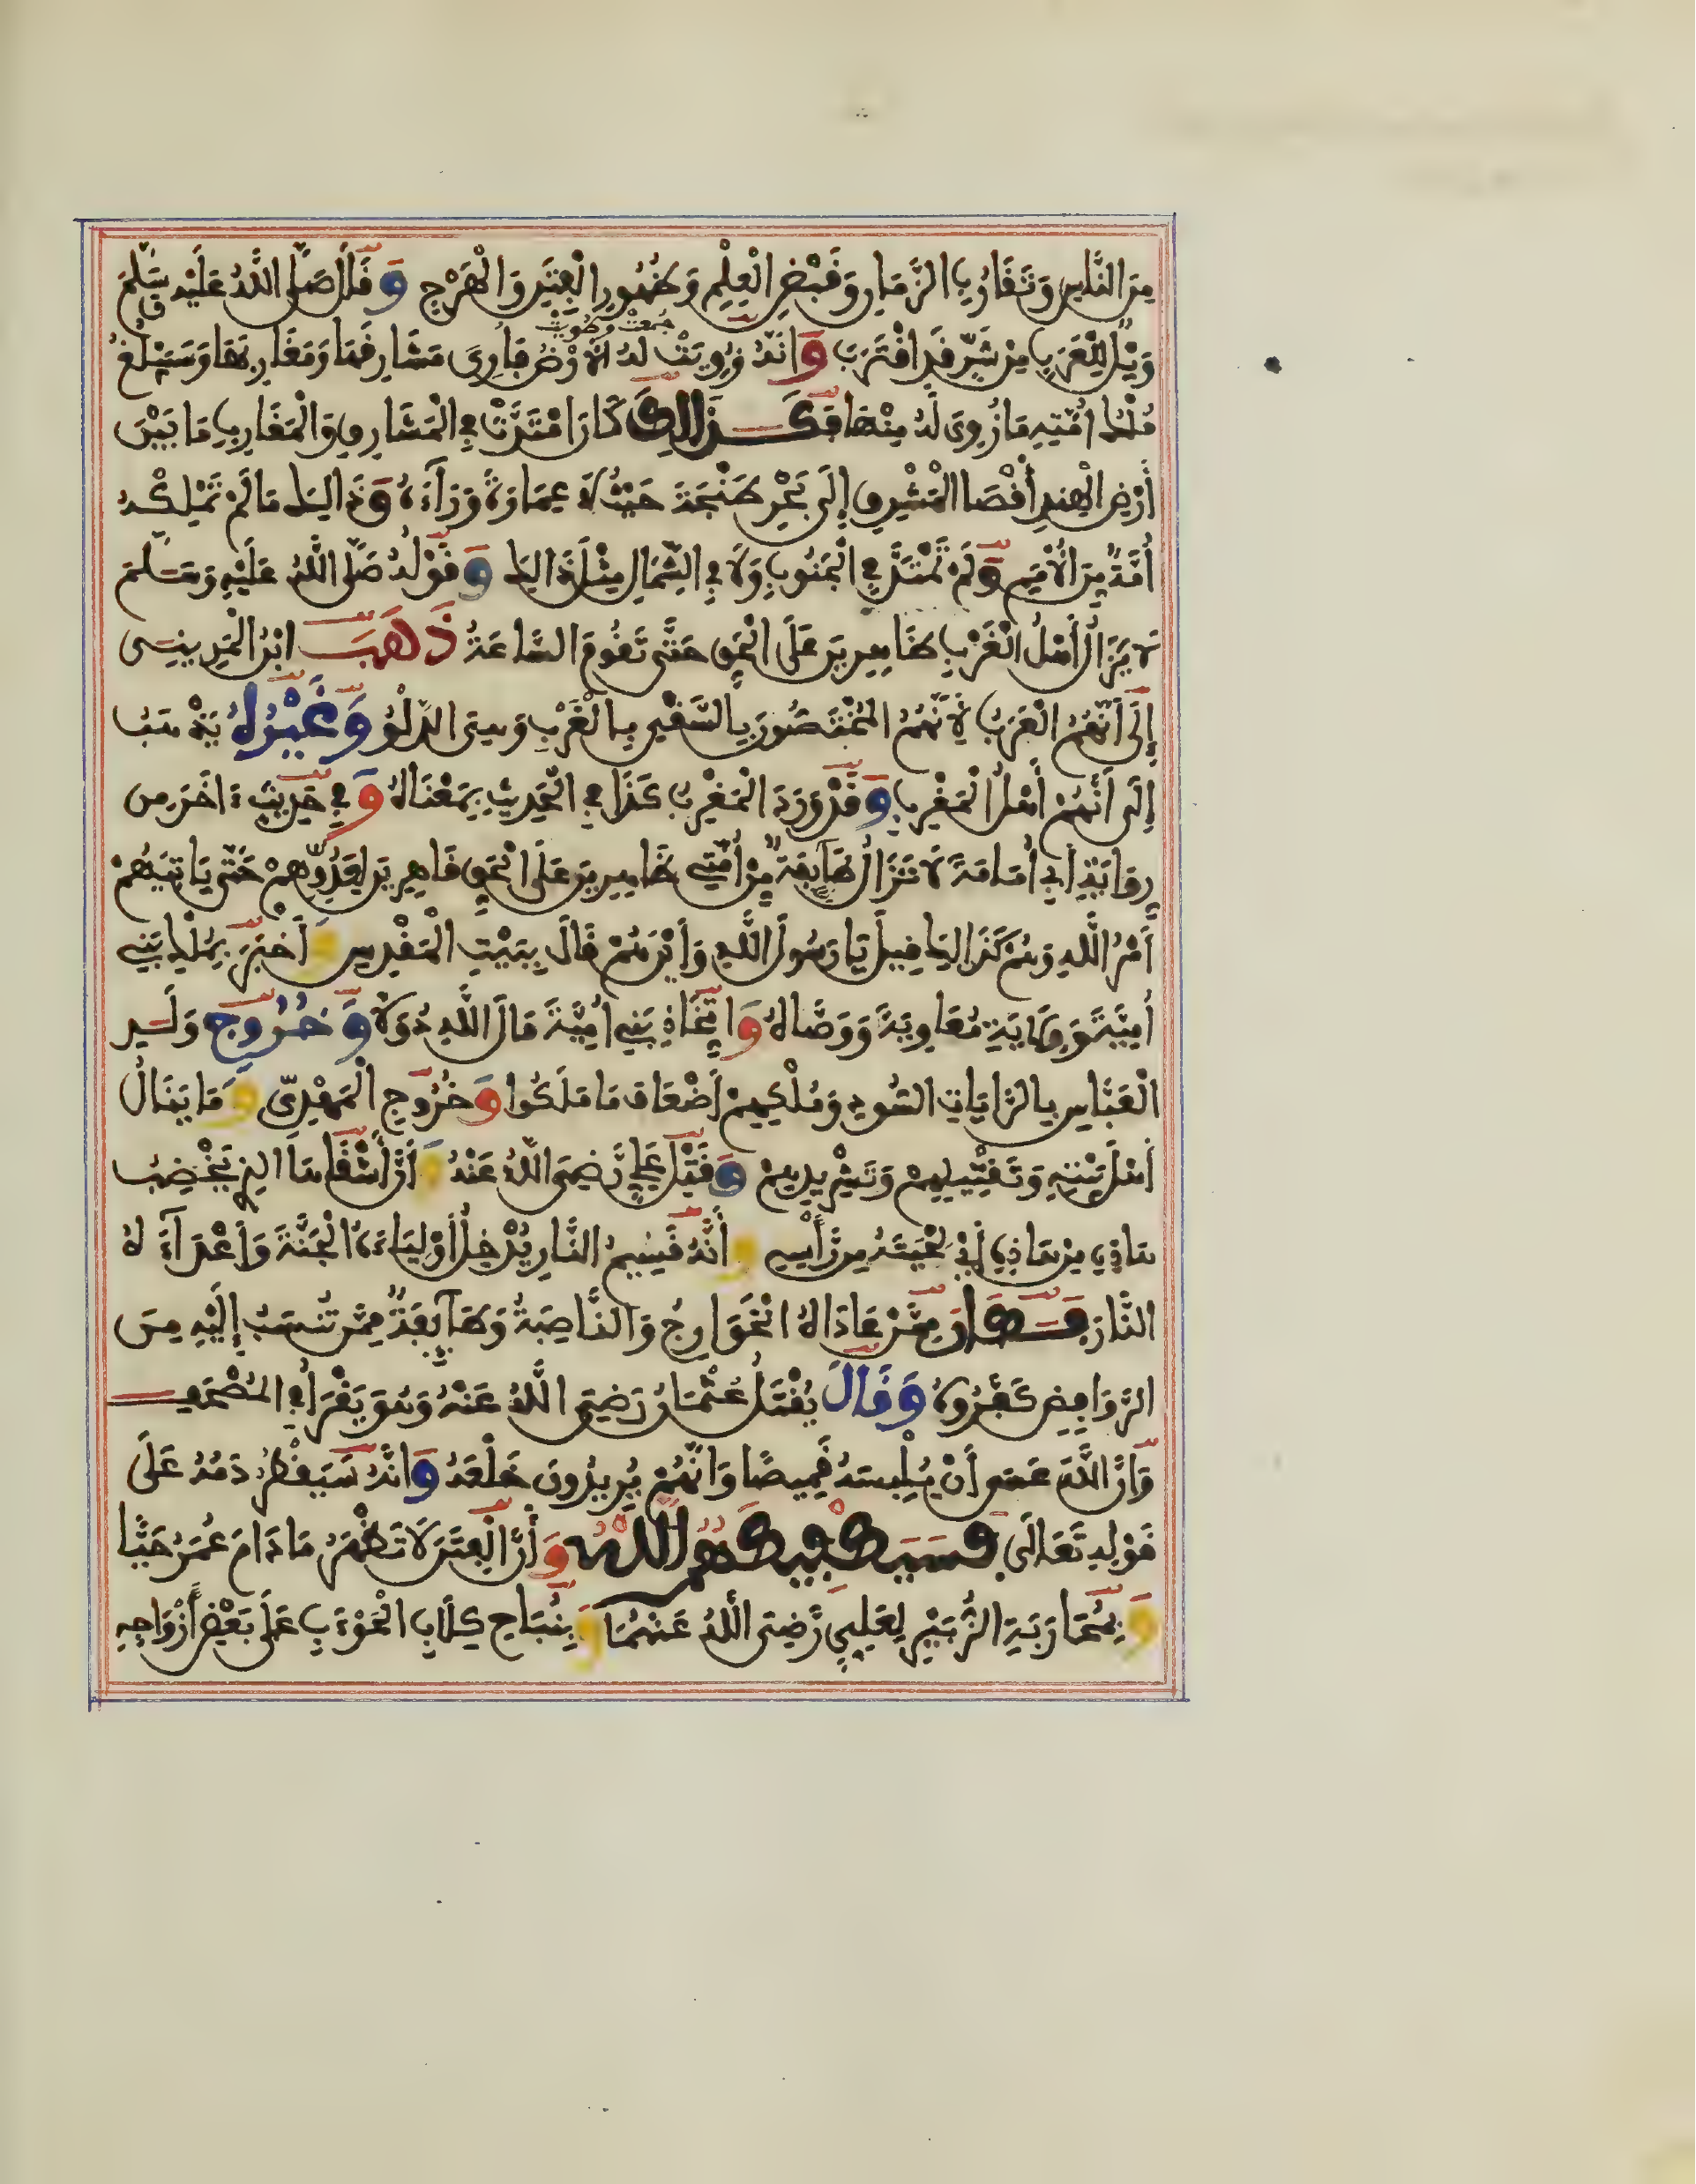 مِنَ النَّاسِ وَتَقَارُبِ الزَّمَانِ وَقَبْضِ الْعِلْمِ وَظُهُورِ الْفِتَنِ وَالْهَرْجِ وَقَالَ صَلَّى اللَّهُ عَلَيْهِ وَسَلَّمَ
وَيْلٌ لِلْعَرَبِ مِنْ شَرٍّ قَدِ اقْتَرَبَ وَأَنَّهُ زُوِيَتْ لَهُ الْأَرْضُ فَأُرِيَ مَشَارِقَهَا وَمَغَارِبَهَا وَسَيَبْلُغُ
جُمِعَتْ وَطُوِيَتْ
مُلْكُ أُمَّتِهِ مَا زُوِيَ لَهُ مِنْهَا فَكَذَالِكَ كَانَ امْتَدَّتْ فِي الْمَشَارِقِ وَالْمَغَارِبِ مَا بَيْنَ
أَرْضِ الْهِنْدِ أَقْصَا الْمَشْرِقِ إِلَى بَحْرِ طَنْجَةَ حَيْثُ لَا عِمَارَةَ وَرَاءَهُ وَذَالِكَ مَا لَمْ تَمْلِكْهُ
أُمَّةٌ مِنَ الْأُمَمِ وَلَمْ تَمْتَدَّ فِي الْجَنُوبِ وَلَا فِي الشِّمَالِ مِثْلَ ذَالِكَ وَقَوْلُهُ صَلَّى اللَّهُ عَلَيْهِ وَسَلَّمَ
لَا يَزَالُ أَهْلُ الْغَرْبِ ظَاهِرِينَ عَلَى الْحَقِّ حَتَّى تَقُومَ السَّاعَةُ ذَهَبَ ابْنُ الْمَدِينِي
إِلَى أَنَّهُمُ الْعَرَبُ لِأَنَّهُمُ الْمُخْتَصُّونَ بِالسَّقْيِ بِالْغَرْبِ وَهِيَ الدَّلْوُ وَغَيْرُهُ يَذْهَبُ
إِلَى أَنَّهُمْ أَهْلُ الْمَغْرِبِ وَقَدْ وَرَدَ الْمَغْرِبُ كَذَا فِي الْحَدِيثِ بِمَعْنَاهُ وَفِي حَدِيثٍ ءَاخَرَ مِن
رِوَايَةِ أَبِي أُمَامَةَ لَا تَزَالُ طَائِفَةٌ مِنْ أُمَّتِي ظَاهِرِينَ عَلَى الْحَقِّ قَاهِرِينَ لِعَدُوِّهِمْ حَتَّى يَاتِيَهُمْ
أَمْرُ اللَّهِ وَهُمْ كَذَالِكَ قِيلَ يَا رَسُولَ اللَّهِ وَأَيْنَ هُمْ قَالَ بِبَيْتِ الْمَقْدِسِ وَأَخْبَرَ بِمُلْكِ بَنِي
أُمَيَّةَ وَوِلَايَةِ مُعَاوِيَةَ وَوَصَّاهُ وَاتِّخَاذِ بَنِي أُمَيَّةَ مَالَ اللَّهِ دُوَلًا وَخُرُوجِ وَلَدِ
الْعَبَّاسِ بِالرَّايَاتِ السُّودِ وَمُلْكِهِمْ أَضْعَافَ مَا مَلَكُوا وَخُرُوجِ الْمَهْدِيِّ وَمَا يَنَالُ
أَهْلَ بَيْتِهِ وَتَقْتِيلِهِمْ وَتَشْرِيدِهِمْ وَقَتْلِ عَلِيٍّ رَّضِيَ اللَّهُ عَنْهُ وَأَنَّ أَشْقَاهَا الذِي يَخْضِبُ
هَاذِهِ مِنْ هَاذِهِ أَيْ لِحْيَتَهُ مِن رَّأْسِهِ وَأَنَّهُ قَسِيمُ النَّارِ يُدْخِلُ أَوْلِيَاءَهُ الْجَنَّةَ وَأَعْدَاءَهُ
النَّارَ فَكَانَ مِمَّنْ عَادَاهُ الْخَوَارِجُ وَالنَّاصِبَةُ وَطَائِفَةٌ مِمَّنْ تُنْسَبُ إِلَيْهِ مِنَ
الرَّوَافِضِ كَفَّرُوهُ وَقَالَ يُقْتَلُ عُثْمَانُ رَضِيَ اللَّهُ عَنْهُ وَهُوَ يَقْرَأُ فِي الْمُصْحَفِ
وَأَنَّ اللَّهَ عَسَى أَنْ يُلْبِسَهُ قَمِيصًا وَأَنَّهُمْ يُرِيدُونَ خَلْعَهُ وَأَنَّهُ سَيَقْطُرُ دَمُهُ عَلَى
قَوْلِهِ تَعَالَى فَسَيَكْفِيكَهُمُ اللَّهُ وَأَنَّ الْفِتَنَ لَا تَظْهَرُ مَا دَامَ عُمَرُ حَيًّا
وَبِمُحَارَبَةِ الزُّبَيْرِ لِعَلِيٍّ رَّضِيَ اللَّهُ عَنْهُمَا وَبِنُبَاحِ كِلَابِ الْحَوْءَبِ عَلَى بَعْضِ أَزْوَاجِهِ